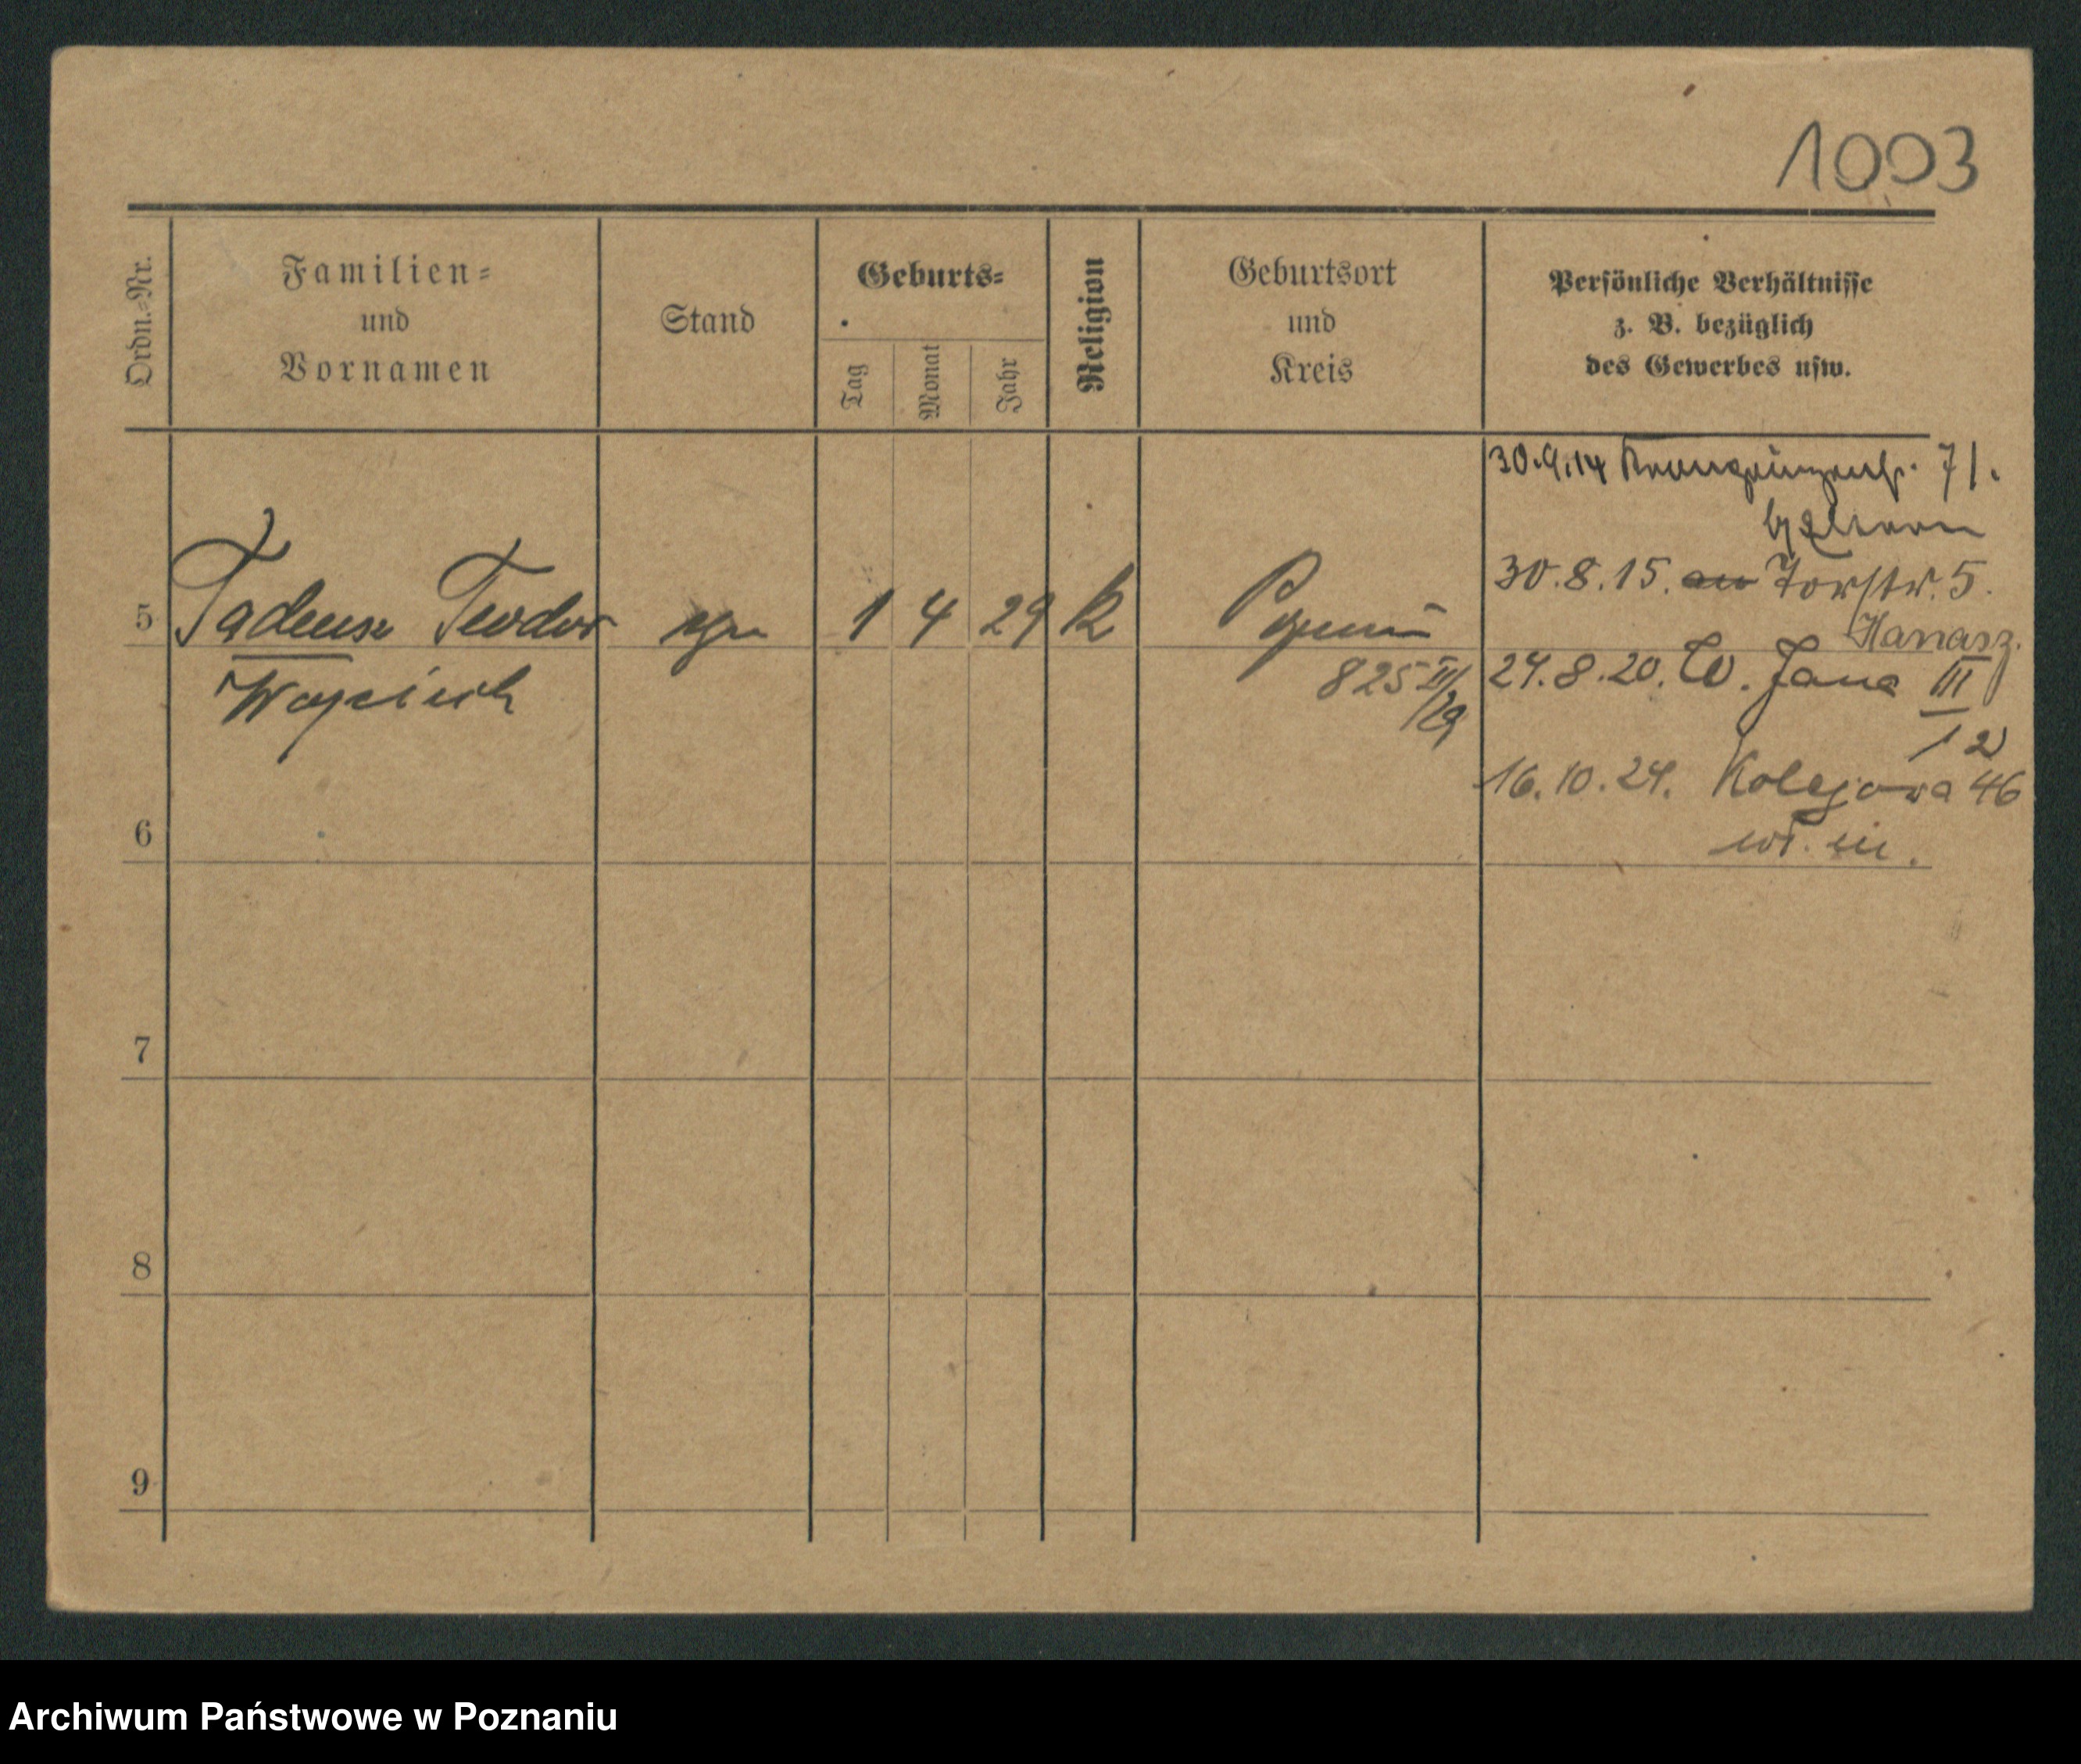 1003
Ordn.-Nr.
Familien-
und
Vornamen
Stand
Geburts-
Tag
Monat
Jahr
Religion
Geburtsort
und
Kreis
Persönliche Verhältnisse
z. B. bezüglich
des Gewerbes usw.
30.9.14 Kronprinzenstr. 71.
30.8.15. an Torstr. 5.
Hanasz.
5 Tadeusz Teodor syn 1 4 29 k Poznań
Wojciech
825 II/29
24.8.20. W. Jana III
12
16.10.24. Kolejowa 46
6
7
8
9
Archiwum Państwowe w Poznaniu